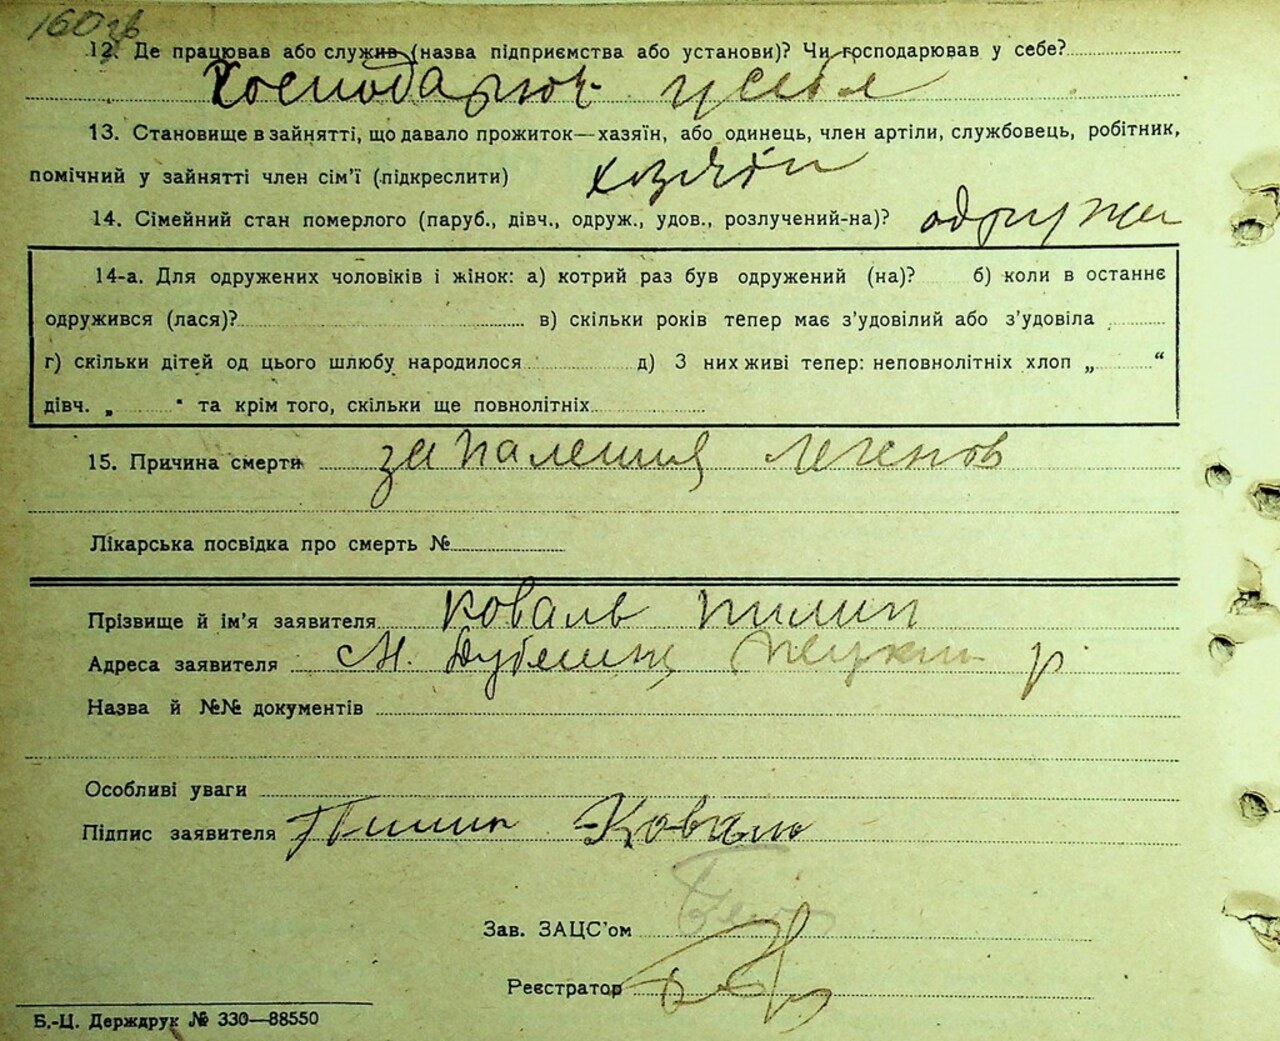 160 зв
12. Де працював або служив (назва підприємства або установи)? Чи господарював у себе?
Господарює у себе
13. Становище в зайнятті, що давало прожиток—хазяїн, або одинець, член артіли, службовець, робітник,
помічний у зайнятті член сім'ї (підкреслити) хозяїн
14. Сімейний стан померлого (паруб., дівч., одруж., удов., розлучений-на)? одружен
14-а. Для одружених чоловіків і жінок: а) котрий раз був одружений (на)? б) коли в останнє
одружився (лася)? в) скільки років тепер має з'удовілий або з'удовіла
г) скільки дітей од цього шлюбу народилося д) З них живі тепер: неповнолітніх хлоп „ “
дівч. „ “ та крім того, скільки ще повнолітніх
15. Причина смерти запалення легенів
Лікарська посвідка про смерть №
Прізвище й ім'я заявителя Коваль Пилип
Адреса заявителя М. р
Назва й №№ документів
Особливі уваги
Підпис заявителя Пилип Коваль
Зав. ЗАЦС'ом
Реєстратор
Б.-Ц. Держдрук № 330—88550